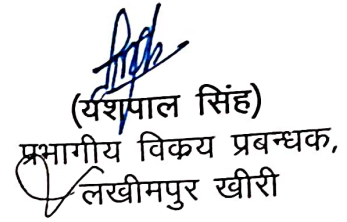 (यशपाल सिंह)
प्रभागीय विक्रय प्रबन्धक,
लखीमपुर खीरी